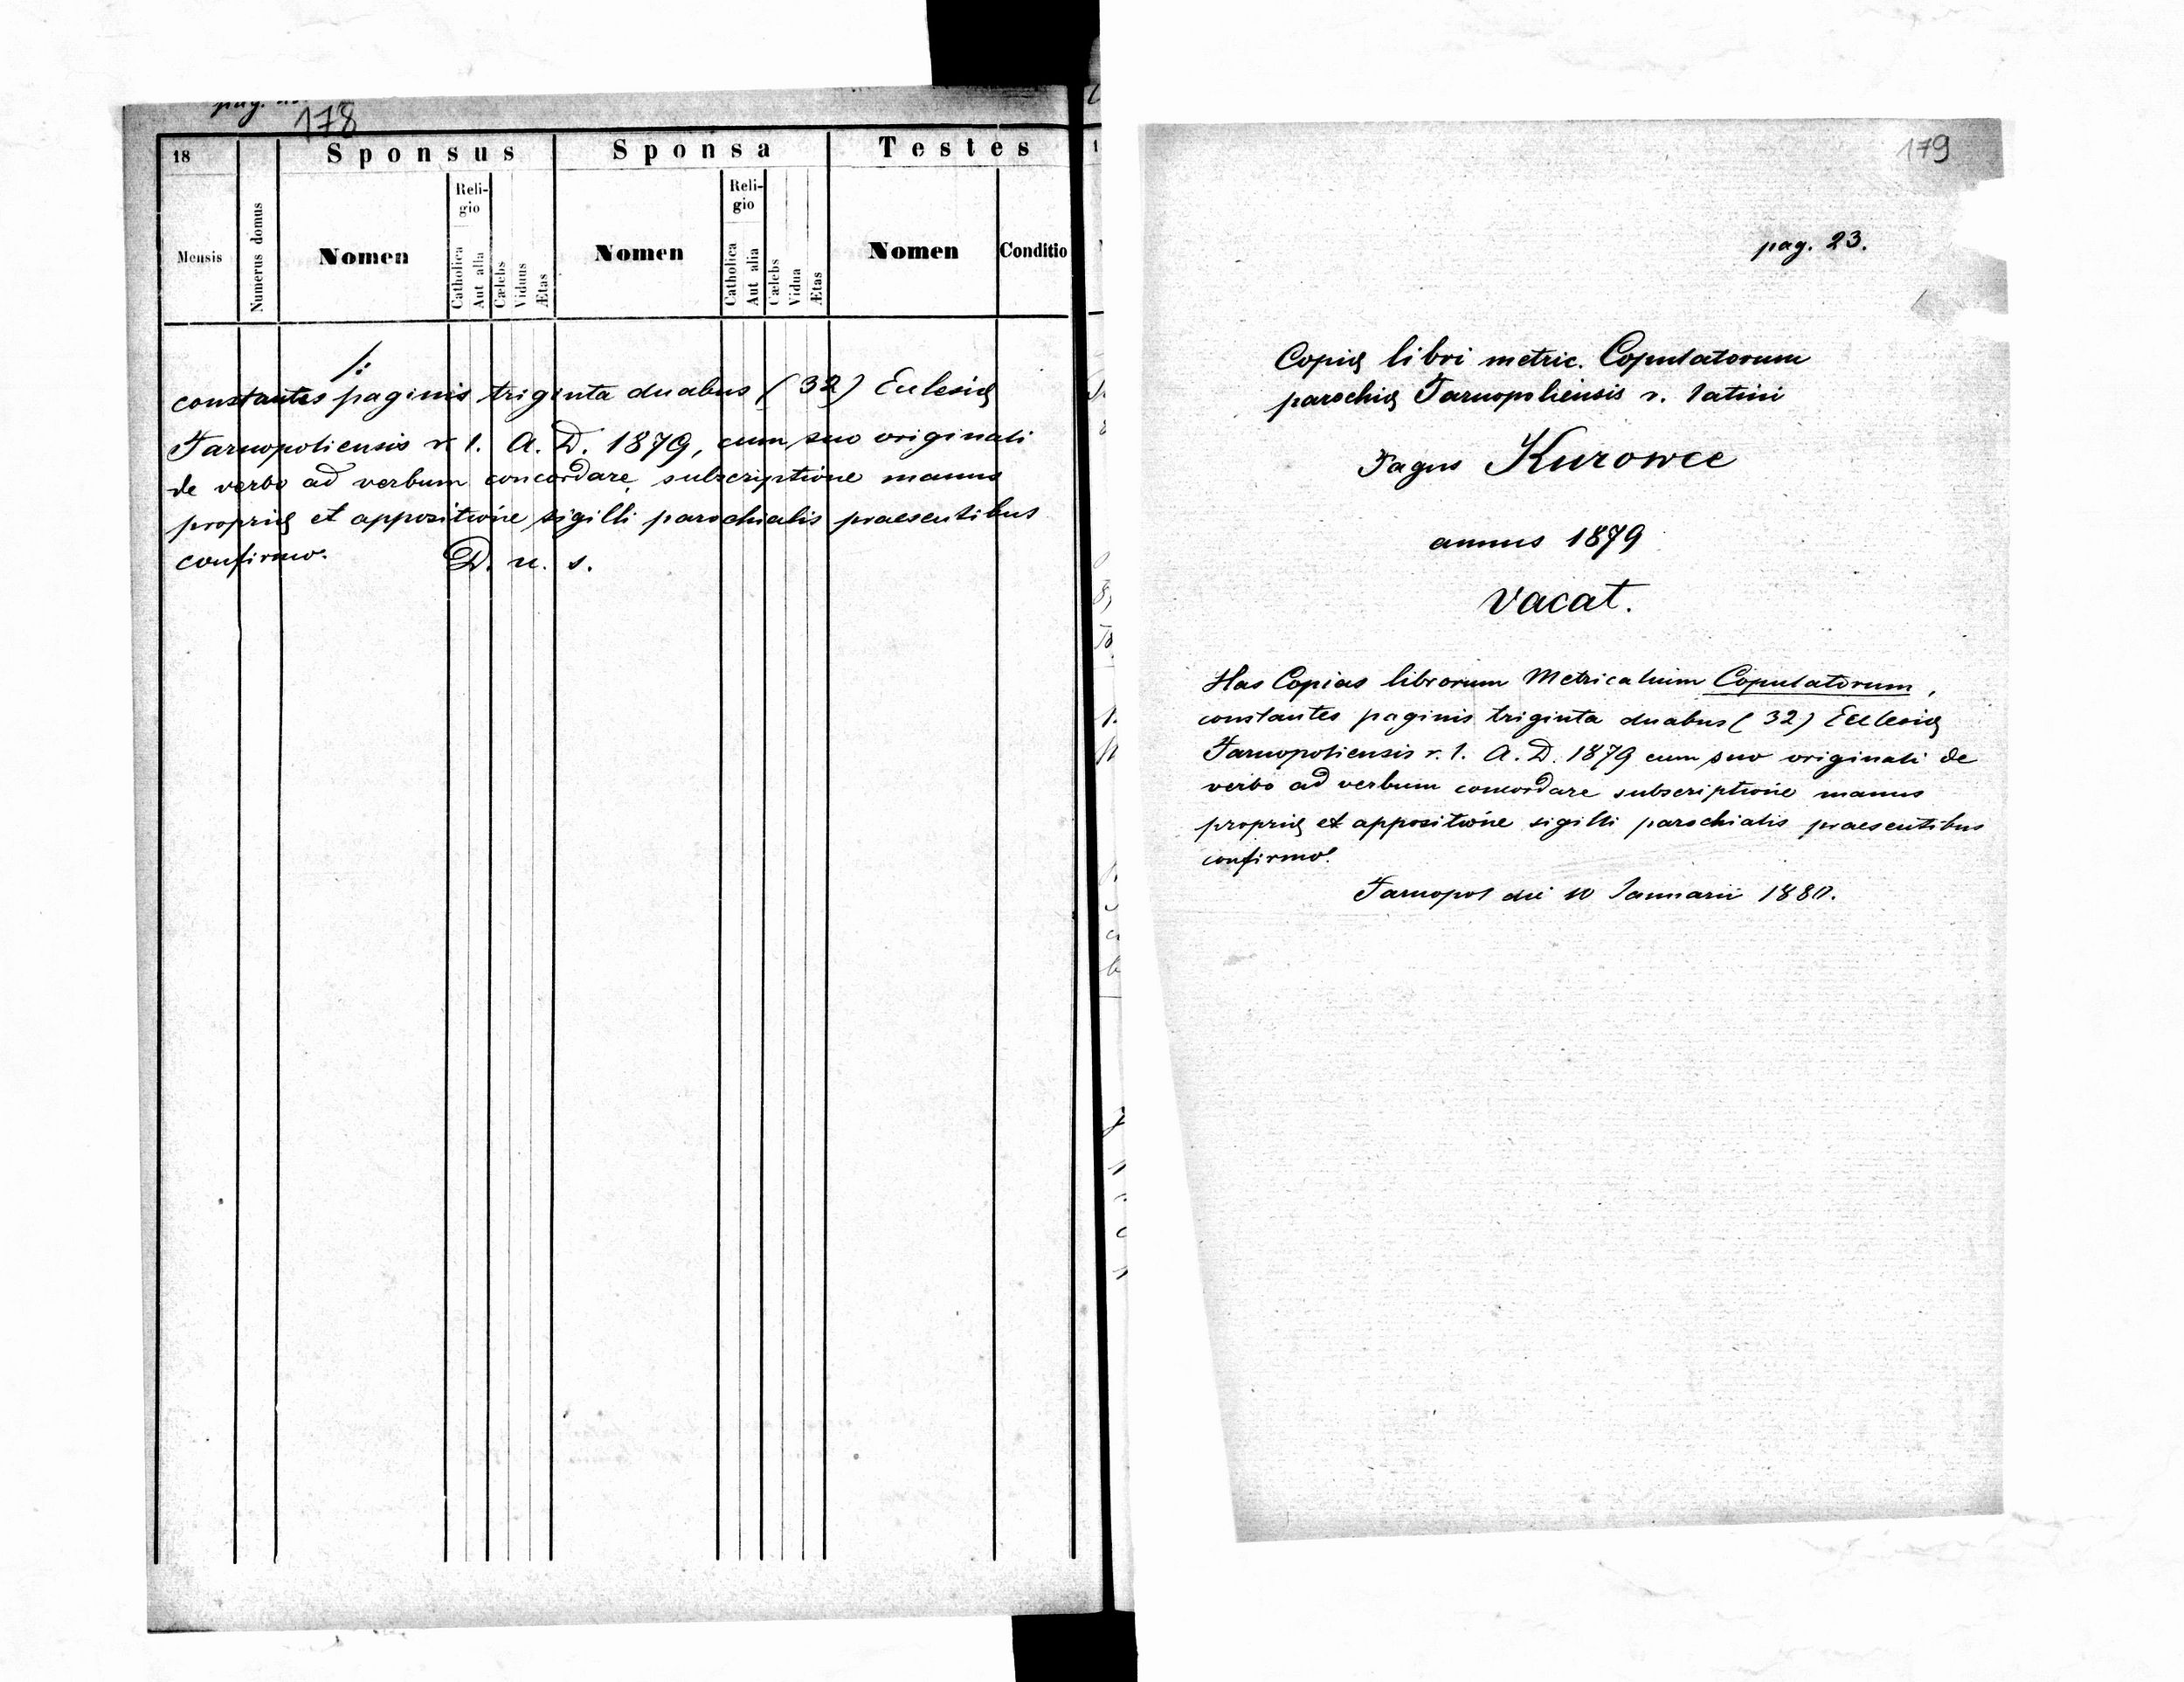 178
18
Sponsus
Sponsa
Testes
Mensis
Numerus domus
Nomen
Religio
Catholica
Aut alia
Cælebs
Viduus
Ætas
Nomen
Religio
Catholica
Aut alia
Cælebs
Vidua
Ætas
Nomen
Conditio
/:
constantes paginis triginta duabus (32) Eclesiæ
Tarnopoliensis r. l. A. D. 1879, cum suo originali
de verbo ad verbum concordare, subscriptione manus
propriæ et appositione sigilli parochialis praesentibus
confirmo.
D. u. s.
179
pag. 23.
Copiæ libri metric. Copulatorum
parochiæ Tarnopoliensis r. latini
Pagus Kurowce
annus 1879
vacat.
Has Copias librorum Metricalium Copulatorum,
constantes paginis triginta duabus (32) Eclesiæ
Tarnopoliensis r. l. A. D. 1879 cum suo originali de
verbo ad verbum concordare subscriptione manus
propriæ et appositione sigilli parochialis praesentibus
confirmo.
Tarnopol die 10 Januarii 1880.